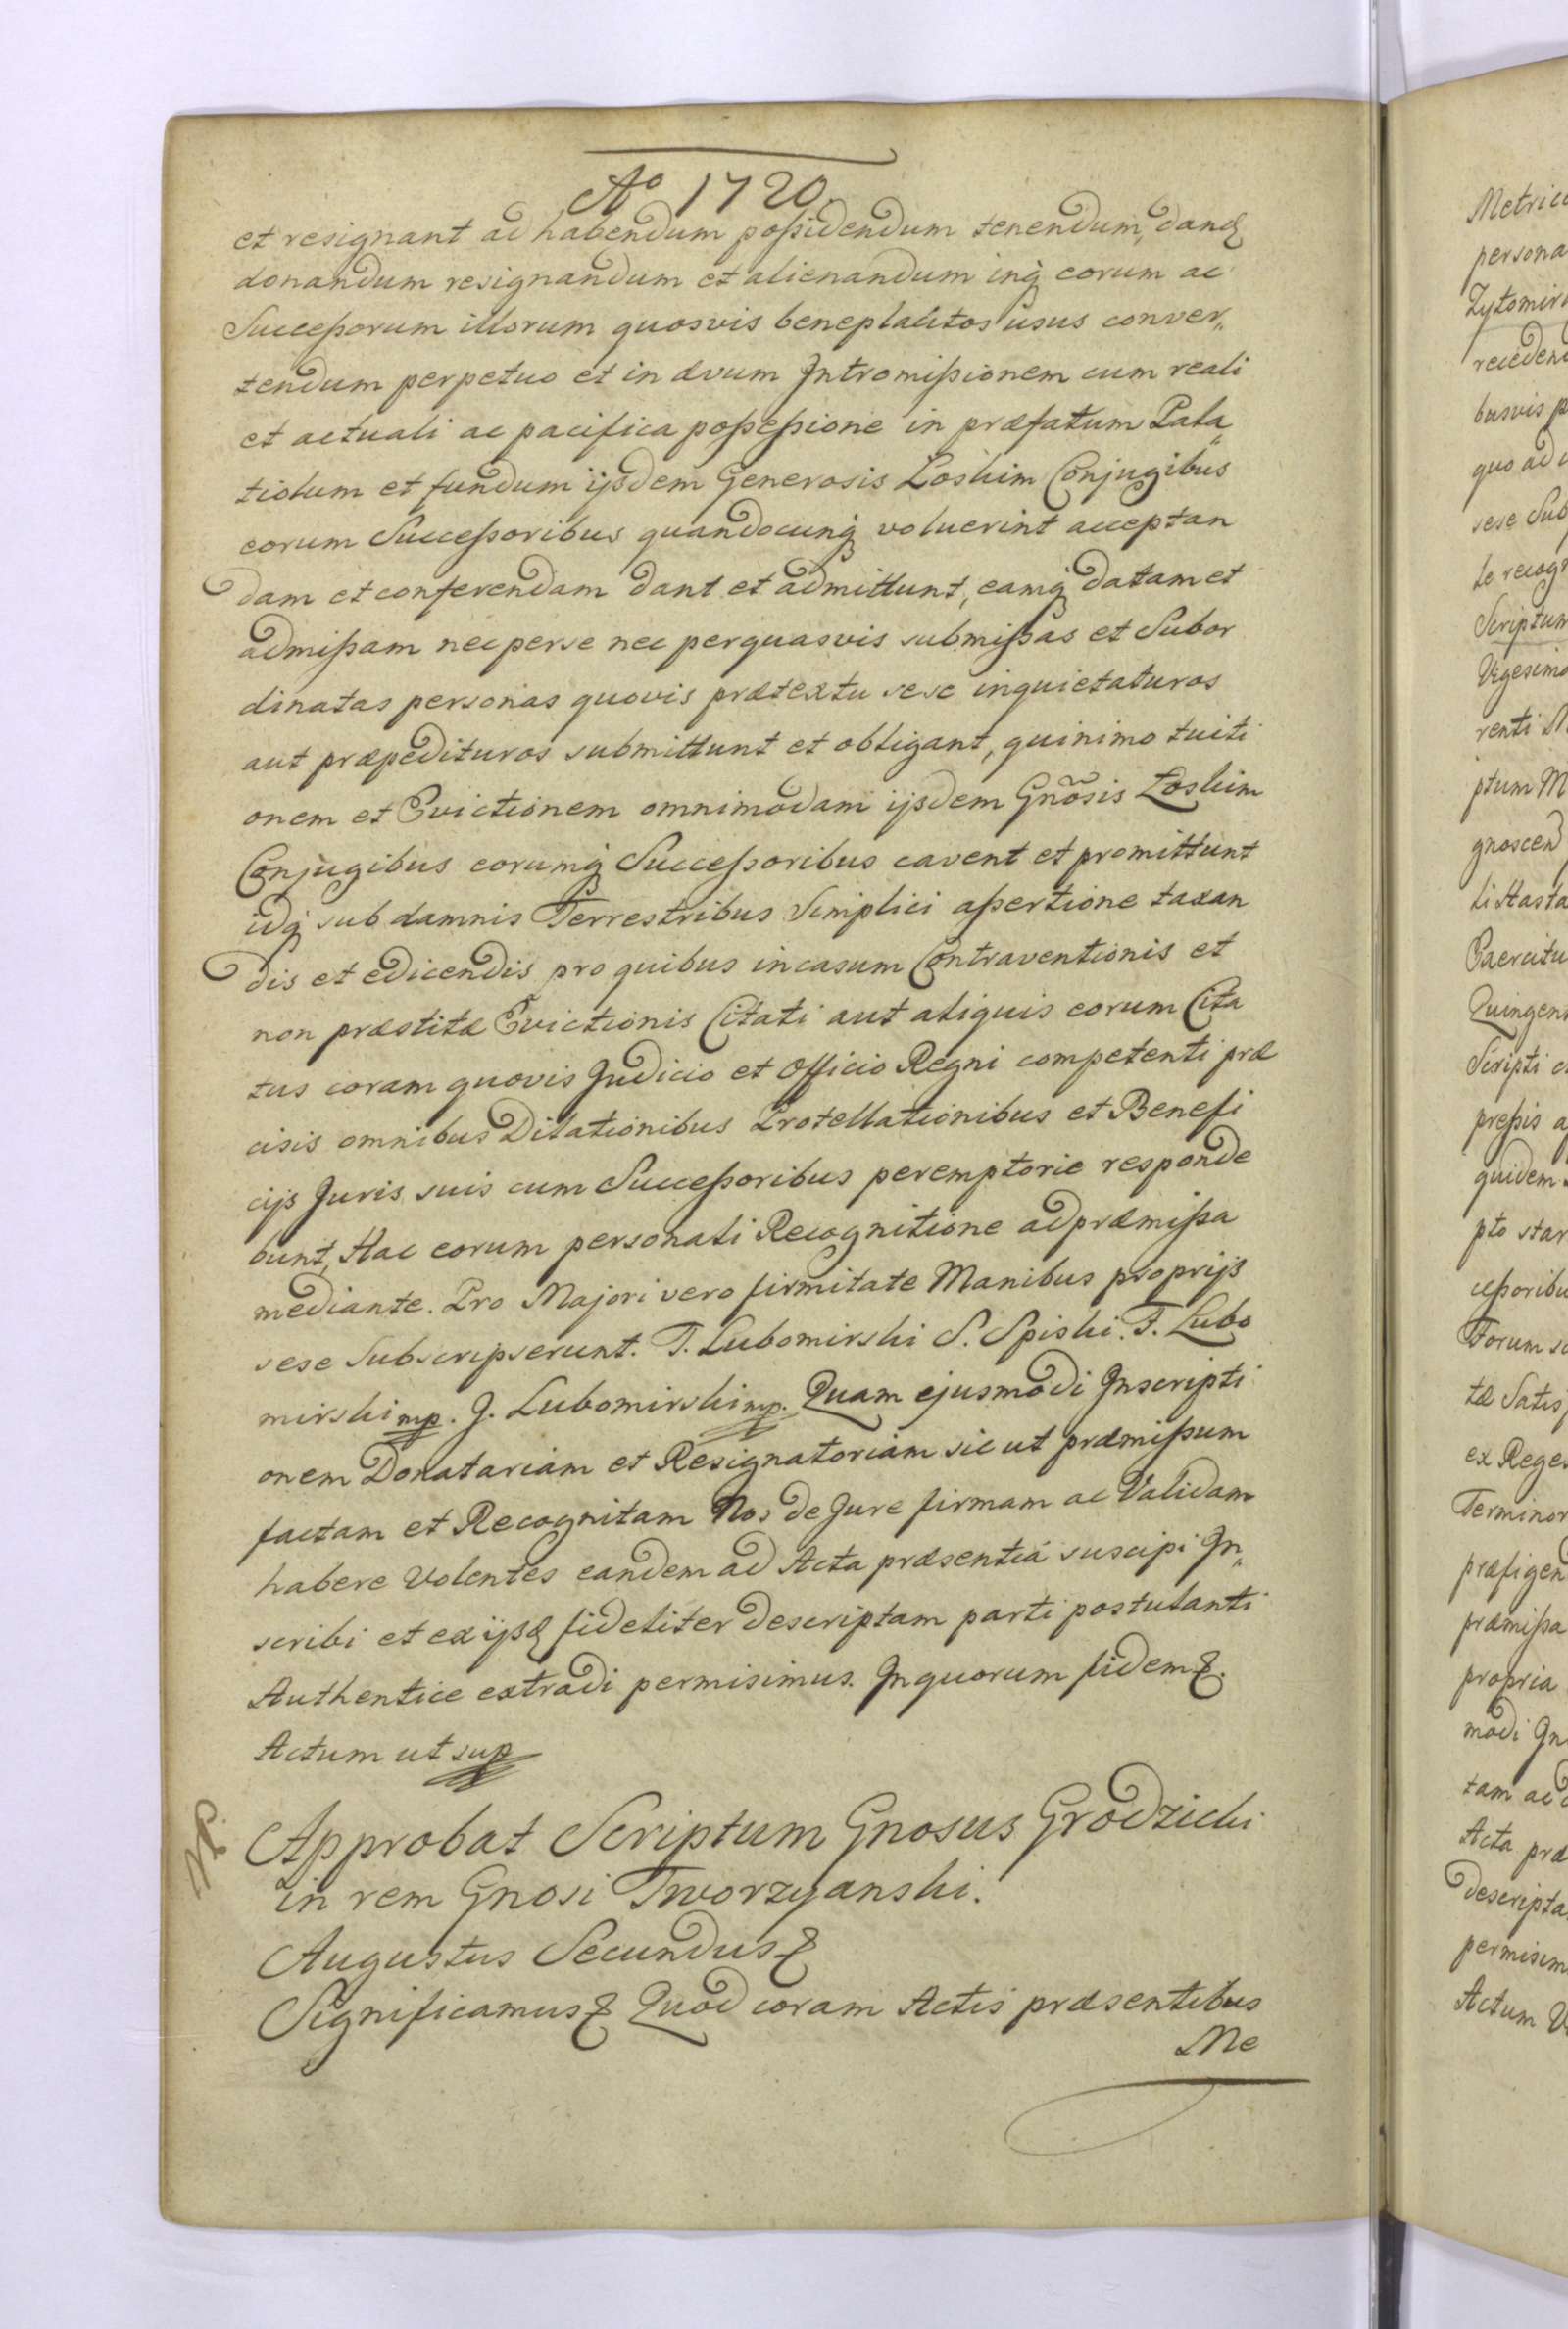 Ao 1720.
et resignant ad habendum possidendum tenendum, dand
donandum resignandum et alienandum inq eorum ac
Successorum illorum quosvis beneplacitos usus conver„
tendum perpetuo et in ævum Intromissionem cum reali
et actuali ac pacifica possessione in præfatum Pala„
tiolum et fundum ijsdem Generosis Loskim Conjugibus
eorum Successoribus quandocunq voluerint acceptan
dam et conferendam dant et admittunt, eamq datam et
admissam nec per se nec per quasvis submissas et Subor
dinatas personas quovis prætextu sese inquietaturos
aut præpedituros submittunt et obligant, quinimo tuiti
onem et Evictionem omnimodam ijsdem Gnõsis Loskim
Conjugibus eorumq Successoribus cavent et promittunt
idq sub damnis Terrestribus Simplici assertione taxan
dis et edicendis pro quibus in casum Contraventionis et
non præstitæ Evictionis Citati aut aliquis eorum Cita
tus coram quovis Judicio et Officio Regni competenti præ
cisis omnibus Dilationibus Protellationibus et Benefi
cijs Juris suis cum Successoribus peremptorie responde
bunt, Hac eorum personali Recognitione ad præmissa
mediante. Pro Majori vero firmitate Manibus proprijs
sese Subscripserunt. T. Lubomirski S. Spiski. F. Lubo
mirski mp. J. Lubomirski mp. Quam ejusmodi Inscripti
onem Donatariam et Resignatoriam sic ut præmissum
factam et Recognitam Nos de Jure firmam ac Validam
habere Volentes eandem ad Acta præsentia suscipi In„
scribi et ex ijsd fideliter descriptam parti postulanti
Authentice extradi permisimus. In quorum fidem &.
Actum ut sup
Approbat Scriptum Gnosus Grodzicki
in rem Gnosi Tworzyanski.
Augustus Secundus &
Significamus & Quod coram Actis præsentibus
Me
Metric
persona
Zytomir
recedend
busvis p
quo ad
sese Sub
Scriptum
Vigesimo
renti
ptum M
gnoscend
li Hasta
Exercitu
Quingent
Scripti
pressis a
quidem
pto star
cessoribu
Forum
tæ Satis
ex Reges
Terminor
præfigen
præmissa
propria
modi In
tam ac
Acta præ
descripta
permisim
Actum